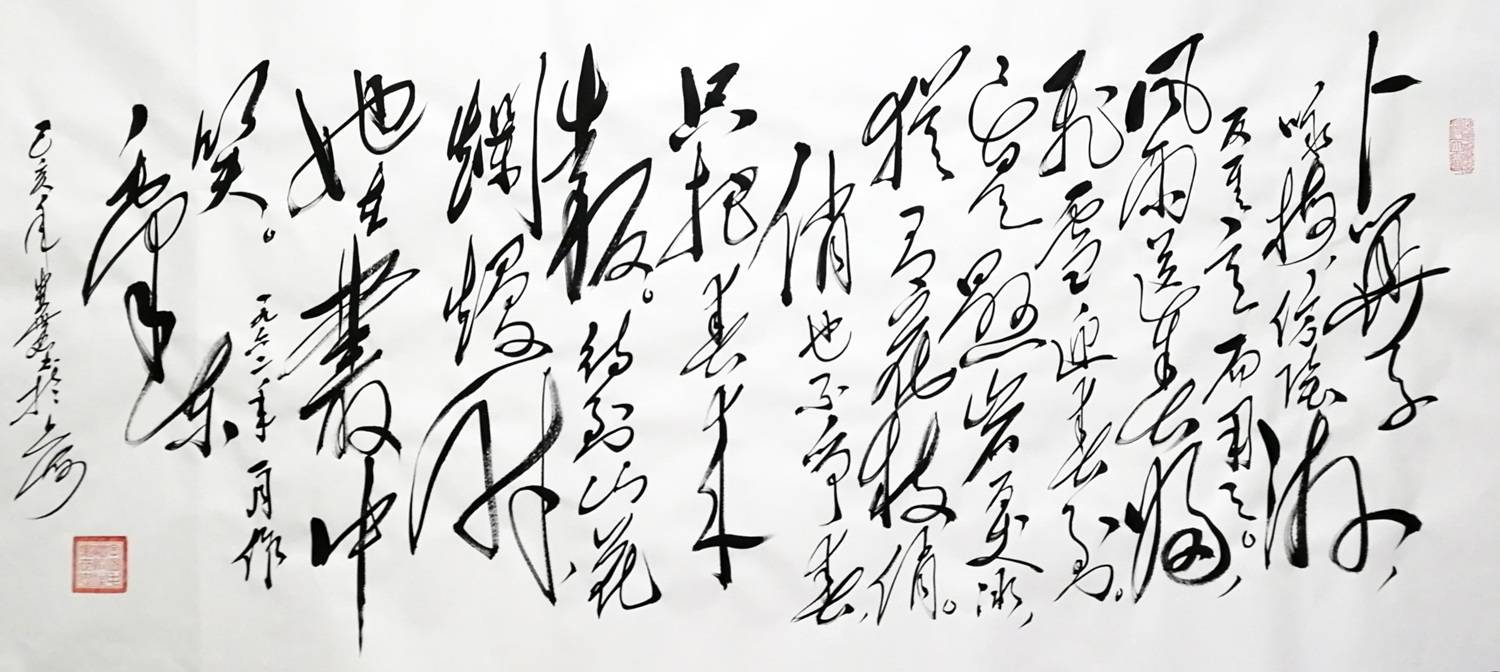 卜算子
咏梅、仿陆游,
反其意而用之。
风雨送春归,
飞雪迎春到。
已是悬岩百丈冰,
犹有花枝俏。
俏也不争春,
只把春来
报。待到山花
烂熳时,
她在丛中
笑。
一九六二年一月作
毛泽东
己亥年